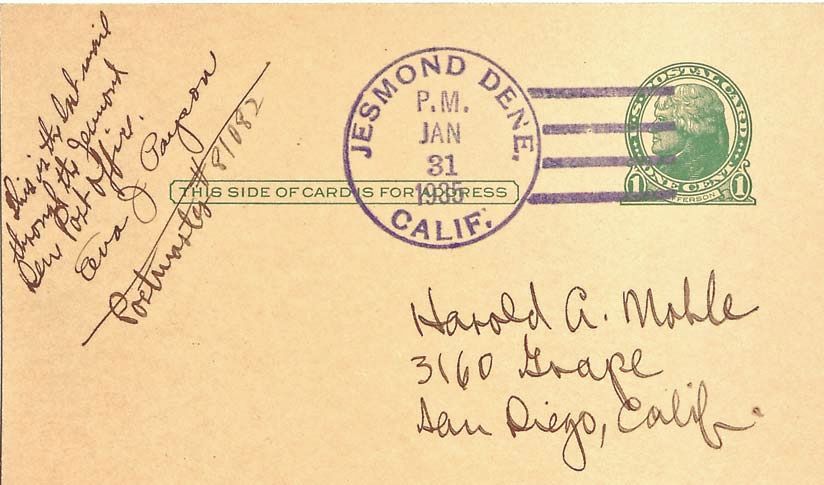 This is the last mail
through the Jesmond
Den Post Office.
Eva J Payson
Postmaster # 81082
JESMOND DENE,
P.M.
JAN
31
1935
CALIF.
U.S. POSTAL CARD
ONE CENT
1 1
JEFFERSON
THIS SIDE OF CARD IS FOR ADDRESS
Harold A. Mohle
3160 Grape
San Diego, Calif.